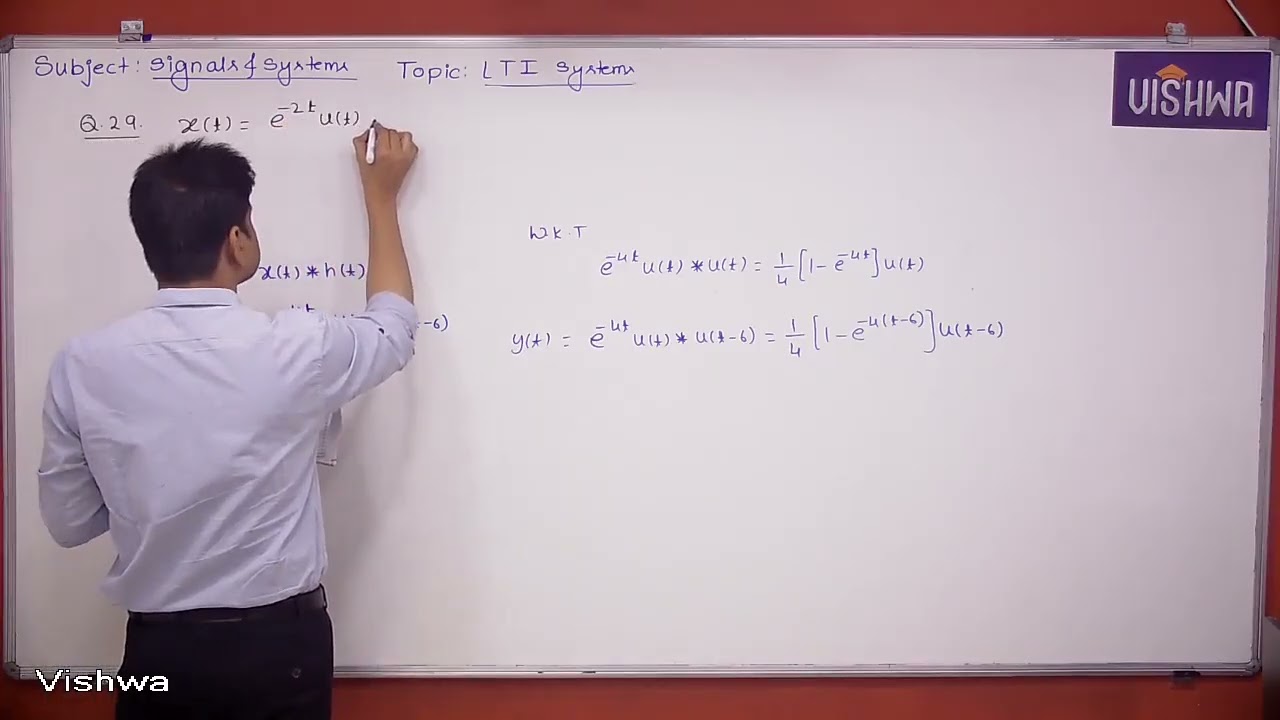 Subject: Signals & Systems Topic: LTI Systems
VISHWA
Q.29. x(t) = e^{-2t} u(t)
W.K.T
x(t) * h(t)
e^{-4t} u(t) * u(t) = 1/4 [1 - e^{-4t}] u(t)
-6)
y(t) = e^{-4t} u(t) * u(t-6) = 1/4 [1 - e^{-4(t-6)}] u(t-6)
Vishwa